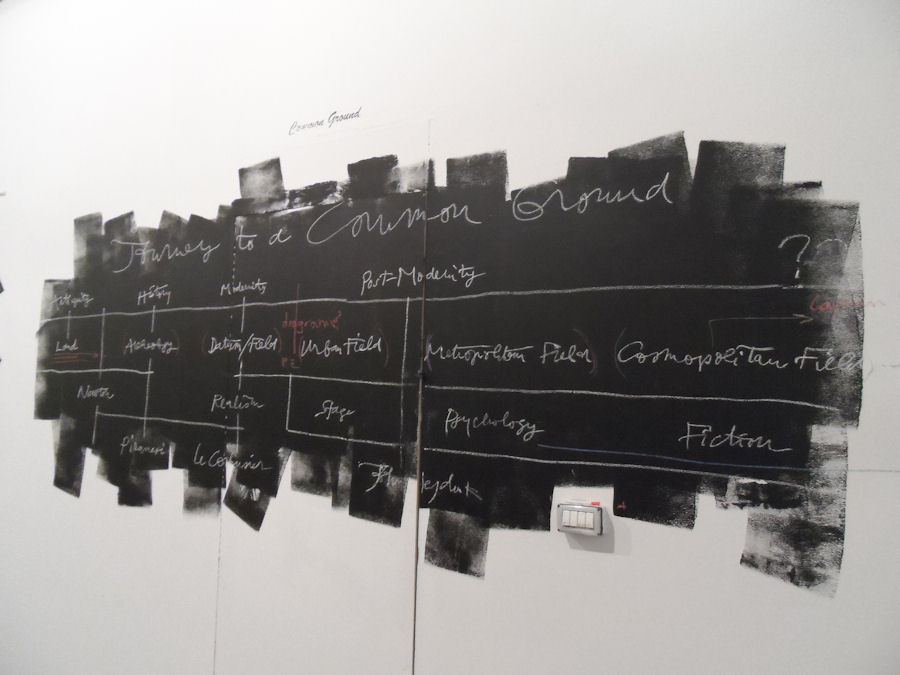 Common Ground
Journey to a Common Ground
Antiquity History Modernity Post-Modernity ?
Land Archeology (Datum/Field) (Urban Field) (Metropolitan Field) (Cosmopolitan Field) Common
Newton Realism Stage Psychology Fiction
Piranesi Le Corbusier